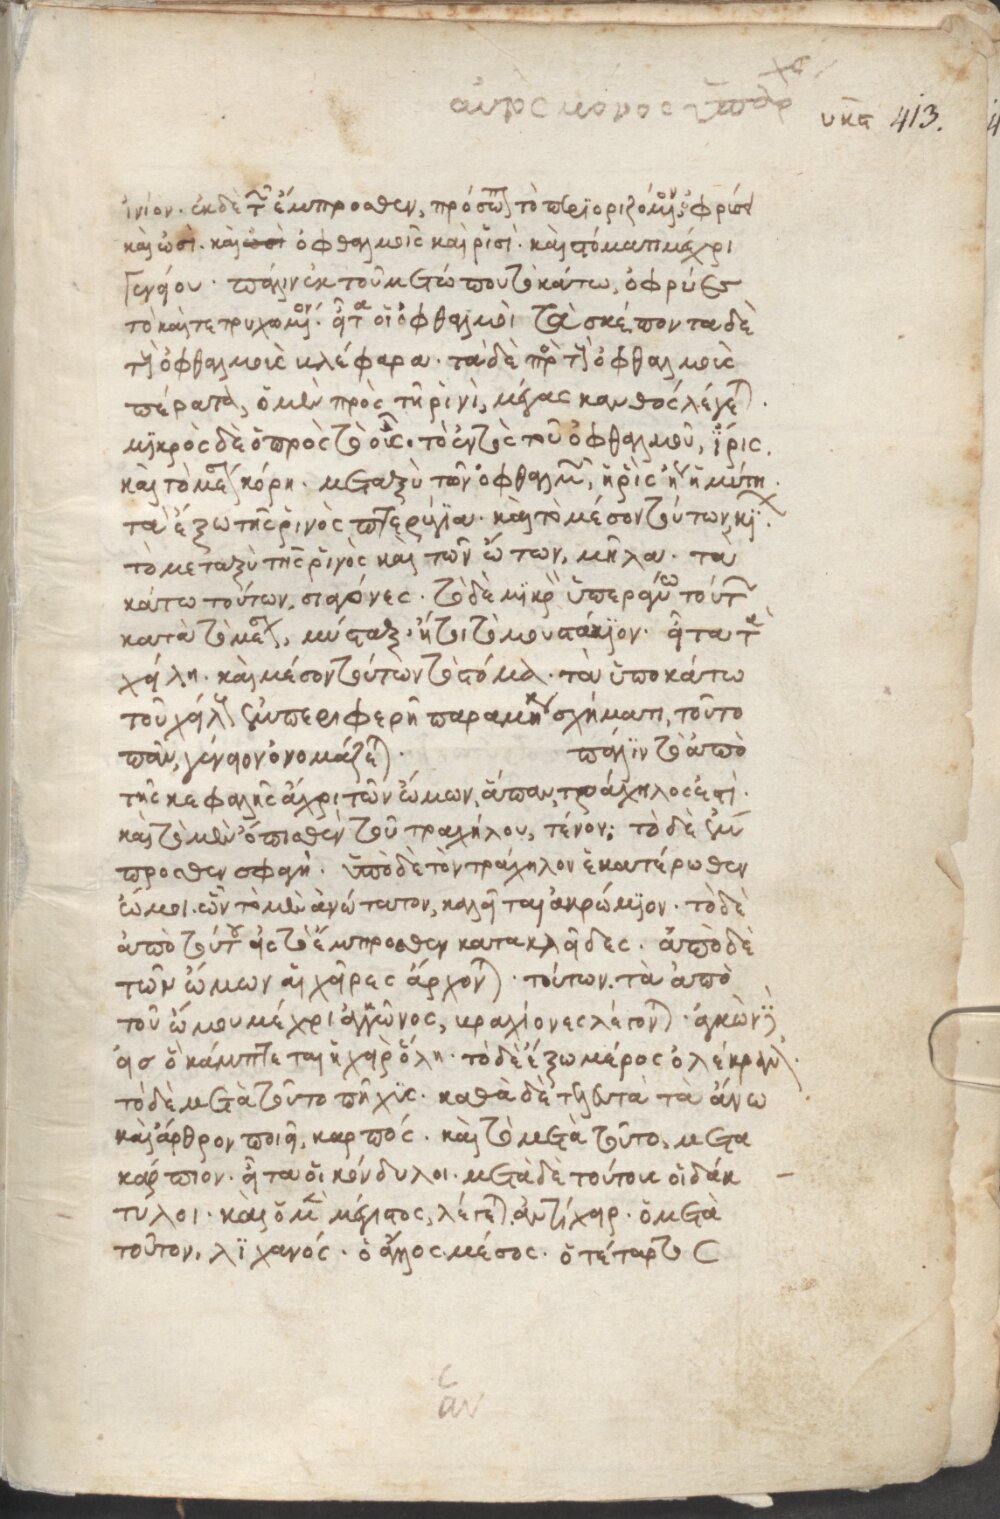 αὐτὸς μόνος ὑπάρχ
υκα 413.
ἰνίον· ἐκ δὲ τ ἔμπροσθεν, πρόσωπ τὸ περιοριζόμενον ὀφρύσι
καὶ ὠσὶ· καὶ ὠσὶ ὀφθαλμοῖς καὶ ῥισὶ· καὶ στόματι μέχρι
γενείου· πάλιν ἐκ τοῦ μετώπου τὸ κάτω, ὀφρύες
τὸ καὶ τετριχωμένον· εἶτα οἱ ὀφθαλμοὶ τὰ σκέποντα δὲ
τοὺς ὀφθαλμοὺς βλέφαρα· τὰ δὲ πρὸ τοῖς ὀφθαλμοῖς
πέρατα, ὁ μὲν πρὸς τῇ ῥινὶ, μέγας κανθὸς λέγετ·
μικρὸς δὲ ὁ πρὸς τὸ οὖς· τὸ ἐντὸς τοῦ ὀφθαλμοῦ, ἶρις.
καὶ τὸ μέσον κόρη· μεταξὺ τῶν ὀφθαλμῶν, ἡ ῥὶς ἢ ἡ μύτη·
τὰ ἔξω τῆς ῥινὸς πτερύγια· καὶ τὸ μέσον τούτων,
τὸ μεταξὺ τῆς ῥινὸς καὶ τῶν ὤτων, μῆλα· τὰ
κάτω τούτων, σιαγόνες· τὸ δὲ μικρὸν ὑπεράνω τούτ
κατὰ τὸ μέσον, μύσταξ· ἤτοι τὸ μουστάκιον· εἶτα τὰ
χείλη· καὶ μέσον τούτων τὸ στόμα· τὰ ὑποκάτω
τοῦ χείλους ἐμπεριφερῆ παραμήκη σχήματι, τοῦτο
πᾶν, γένειον ὀνομάζετ· πάλιν τὸ ἀπὸ
τῆς κεφαλῆς ἄχρι τῶν ὤμων, ἅπαν, τράχηλος ἐστί·
καὶ τὸ μὲν ὄπισθεν τοῦ τραχήλου, τένον· τὸ δὲ ἔμ
προσθεν σφαγή· ὑπὸ δὲ τὸν τράχηλον ἑκατέρωθεν
ὦμοι· ὧν τὸ μὲν ἀνώτατον, καλεῖται ἀκρώμιον· τὸ δὲ
ἀπὸ τούτου εἰς τὸ ἔμπροσθεν κατακλεῖδες· ἀπὸ δὲ
τῶν ὤμων αἱ χεῖρες ἄρχοντ· τούτων τὰ ἀπὸ
τοῦ ὤμου μέχρι ἀγκῶνος, βραχίονες λέγοντ· ἀγκὼν
εἰς ὃ κάμπτεται ἡ χεὶρ ὅλη· τὸ δὲ ἔξω μέρος ὀλέκρανον·
τὸ δὲ μετὰ τοῦτο πῆχις· καθὰ δὲ τελευτᾶ τὰ ἄνω
καὶ ἄρθρον ποιεῖ, καρπός· καὶ τὸ μετὰ τοῦτο, μετα
κάρπιον· εἶτα οἱ κόνδυλοι· μετὰ δὲ τούτους οἱ δάκ
τυλοι· καὶ ὁ μὲν μέγιστος, λέγετ ἀντίχειρ· ὁ μετὰ
τοῦτον, λιχανός· ὁ ἄλλος μέσος· ὁ τέταρτος
ἂν